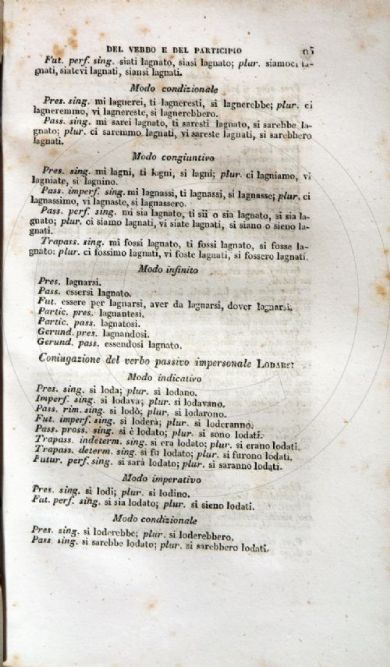 DEL VERBO E DEL PARTICIPIO
Fut. perf. sing. siati lagnato, siasi lagnato; plur. siamoci la-
gnati, siatevi lagnati, siansi lagnati.
Modo condizionale
Pres. sing. mi lagnerei, ti lagneresti, si lagnerebbe; plur. ci
lagneremmo, vi lagnereste, si lagnerebbero.
Pass. sing. mi sarei lagnato, ti saresti lagnato, si sarebbe la-
gnato; plur. ci saremmo lagnati, vi sareste lagnati, si sarebbero
lagnati.
Modo congiuntivo
Pres. sing. mi lagni, ti lagni, si lagni; plur. ci lagniamo, vi
lagniate, si lagnino.
Pass. imperf. sing. mi lagnassi, ti lagnassi, si lagnasse; plur. ci
lagnassimo, vi lagnaste, si lagnassero.
Pass. perf. sing. mi sia lagnato, ti sii o sia lagnato, si sia la-
gnato; plur. ci siamo lagnati, vi siate lagnati, si siano o sieno la-
gnati.
Trapass. sing. mi fossi lagnato, ti fossi lagnato, si fosse la-
gnato; plur. ci fossimo lagnati, vi foste lagnati, si fossero lagnati.
Modo infinito
Pres. lagnarsi.
Pass. essersi lagnato.
Fut. essere per lagnarsi, aver da lagnarsi, dover lagnarsi.
Partic. pres. lagnantesi.
Partic. pass. lagnatosi.
Gerund. pres. lagnandosi.
Gerund. pass. essendosi lagnato.
Coniugazione del verbo passivo impersonale LODARSI
Modo indicativo
Pres. sing. si loda; plur. si lodano.
Imperf. sing. si lodava; plur. si lodavano.
Pass. rim. sing. si lodò; plur. si lodarono.
Fut. imperf. sing. si loderà; plur. si loderanno.
Pass. pross. sing. si è lodato; plur. si sono lodati.
Trapass. indeterm. sing. si era lodato; plur. si erano lodati.
Trapass. determ. sing. si fu lodato; plur. si furono lodati.
Futur. perf. sing. si sarà lodato; plur. si saranno lodati.
Modo imperativo
Pres. sing. si lodi; plur. si lodino.
Fut. perf. sing. si sia lodato; plur. si sieno lodati.
Modo condizionale
Pres. sing. si loderebbe; plur. si loderebbero.
Pass. sing. si sarebbe lodato; plur. si sarebbero lodati.